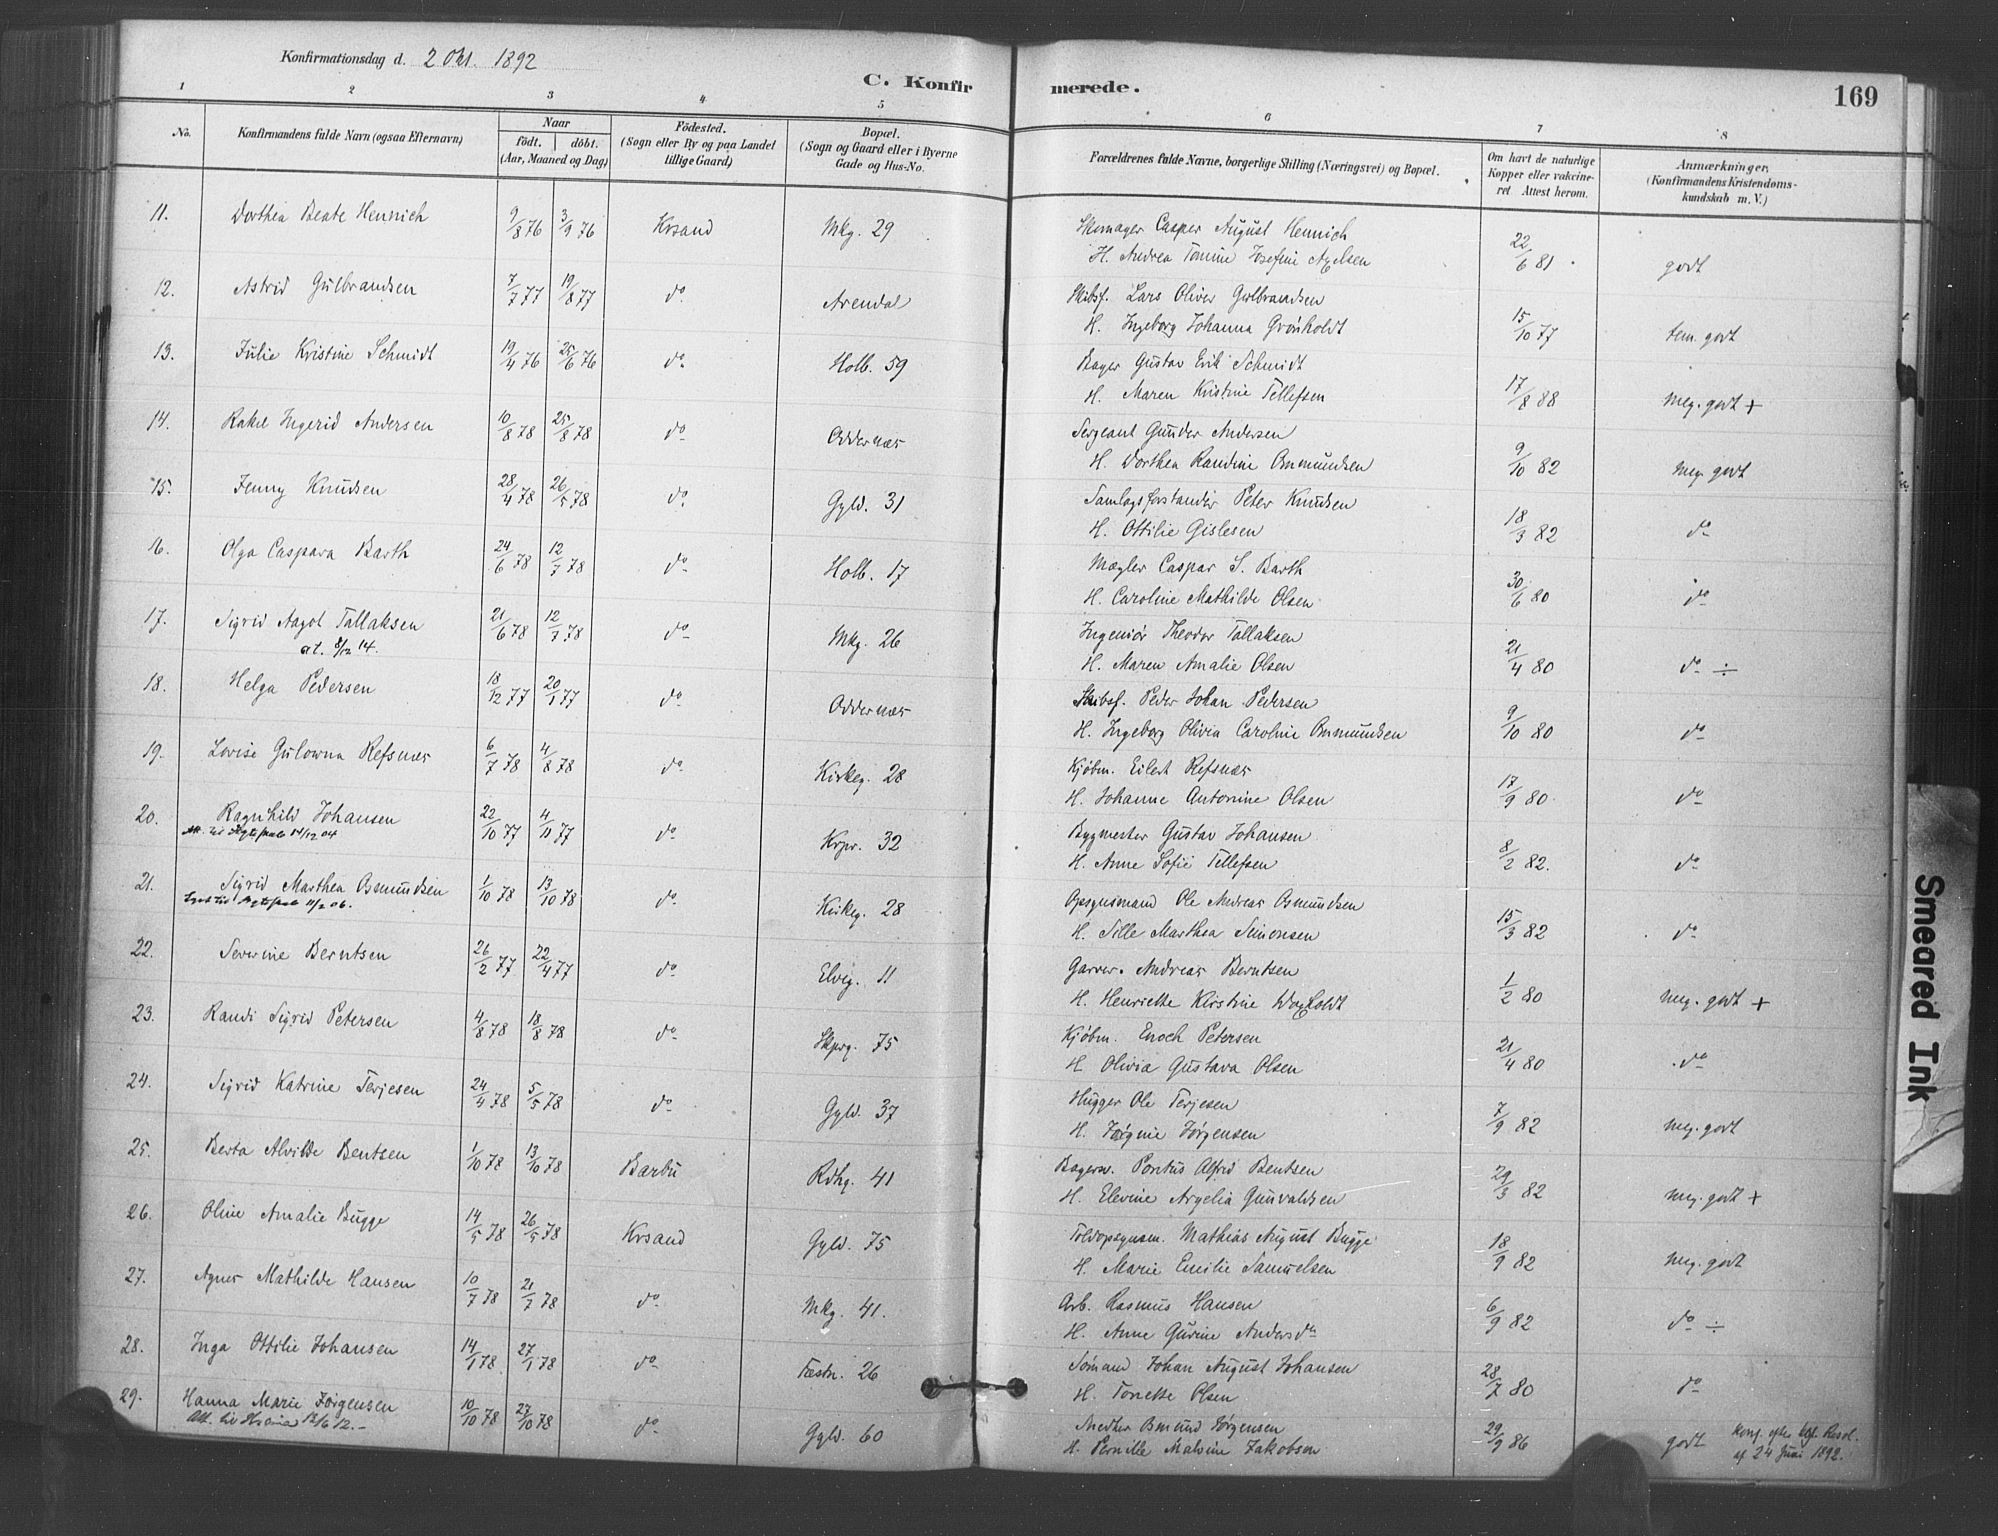 Konfirmationsdag d. 2 Okt. 1892
C. Konfirmerede.
169
1 2 3 4 5 6 7 8
No.
Konfirmandens fulde Navn (ogsaa Efternavn)
Naar
födt. döbt.
(Aar, Maaned og Dag)
Födested.
(Sogn eller By og paa Landet
tillige Gaard)
Bopæl.
(Sogn og Gaard eller i Byerne
Gade og Hus-No.
Forældrenes fulde Navne, borgerlige Stilling (Næringsvei) og Bopæl.
Om havt de naturlige
Kopper eller vakcine-
ret Attest herom.
Anmærkninger.
(Konfirmandens Kristendoms-
kundskab m. V.)
11. Dorthea Beate Hennich 9/8 76 3/9 76 Krsand Mkg. 29 Skomager Casper August Hennich
H. Andrea Tomine Josefine Axelsen 22/6 81. godt
12. Astrid Gulbrandsen 7/7 77 19/8 77 do Arendal Skibsf. Lars Oliver Gulbrandsen
H. Ingeborg Johanna Grönholdt 15/10 77 tem. godt
13. Julie Kristine Schmidt 19/4 76 25/6 76 do Holb. 59 Bager Gustav Erik Schmidt
H. Maren Kristine Tellefsen 17/8 88 meg. godt +
14. Rakel Ingerid Andersen 10/8 78 25/8 78 do Oddernæs Sergeant Gunder Andersen
H. Dorthea Randine Osmundsen 9/10 82 meg. godt
15. Jenny Knudsen 28/4 78 26/5 78 do Gyld. 31 Samlagsforstander Peter Knudsen
H. Ottilie Gislesen 18/3 82 do
16. Olga Caspara Barth 24/6 78 12/7 78 do Holb. 17 Mægler Caspar S. Barth
H. Caroline Mathilde Olsen 30/6 80 do
17. Sigrid Aagot Tallaksen 21/6 78 12/7 78 do Mkg. 26 Ingeniör Theodor Tallaksen
at. 8/12 14.
H. Maren Amalie Olsen 21/4 80 do ÷
18. Helga Pedersen 18/12 77 20/1 77 do Oddernæs Skibsf. Peder Johan Pedersen
H. Ingeborg Olivia Caroline Osmundsen 9/10 80 do
19. Lovise Gulowna Refsnæs 6/7 78 4/8 78 do Kirkeg. 28 Kjøbm. Eilert Refsnæs
H. Johanne Antonine Olsen 17/9 80. do
20. Ragnhild Johansen 22/10 77 4/11 77 do Krpr. 32 Bygmester Gustav Johansen
H. Anne Sofie Tellefsen 8/2 82. do
21. Sigrid Marthea Osmundsen 1/10 78 13/10 78 do Kirkeg. 28 Opsynsmand Ole Andreas Osmundsen
H. Sille Marthea Simonsen 15/3 82 do
22. Severine Berntsen 26/2 77 22/4 77 do Elvig. 11 Garver. Andreas Berntsen
H. Henriette Kirstine Woxholdt 1/2 80 meg. godt +
23. Randi Sigrid Petersen 4/8 78 18/8 78 do Skprg. 75 Kjøbm. Enoch Petersen
H Olivia Gustava Olsen 21/4 80 do
24. Sigrid Katrine Terjesen 24/4 78 5/5 78 do Gyld. 37 Hugger Ole Terjesen
H. Jørgine Jörgensen 7/9 82 meg. godt
25. Berta Alvilde Bentsen 1/10 78 13/10 78 Barbu Rdhg. 41 Bagersv. Pontus Alfrid Bentsen
H. Elevine Argelia Gunvaldsen 29/3 82 meg. godt +
26. Oline Amalie Bugge 14/5 78 26/5 78 Krsand Gyld. 75 Toldopsynsm. Mathias August Bugge
H. Marie Emilie Samuelsen 18/9 82 meg. godt
27. Agnes Mathilde Hansen 10/7 78 21/7 78 do Mkg. 41. Arb. Rasmus Hansen
H. Anne Gurine Andersdr 6/9 82 do ÷
28. Inga Ottilie Johansen 14/1 78 27/1 78 do Fæstn. 26 Sømand Johan August Johansen
H. Tonette Olsen 28/7 80 do
29. Hanna Marie Jörgensen 10/10 78 27/10 78 do Gyld. 60 Snedker Osmund Jörgensen
H. Pernille Malvine Jakobsen 29/9 86 godt konf. efter kgl. Resol.
af 24 Juni 1892.
Smeared Ink